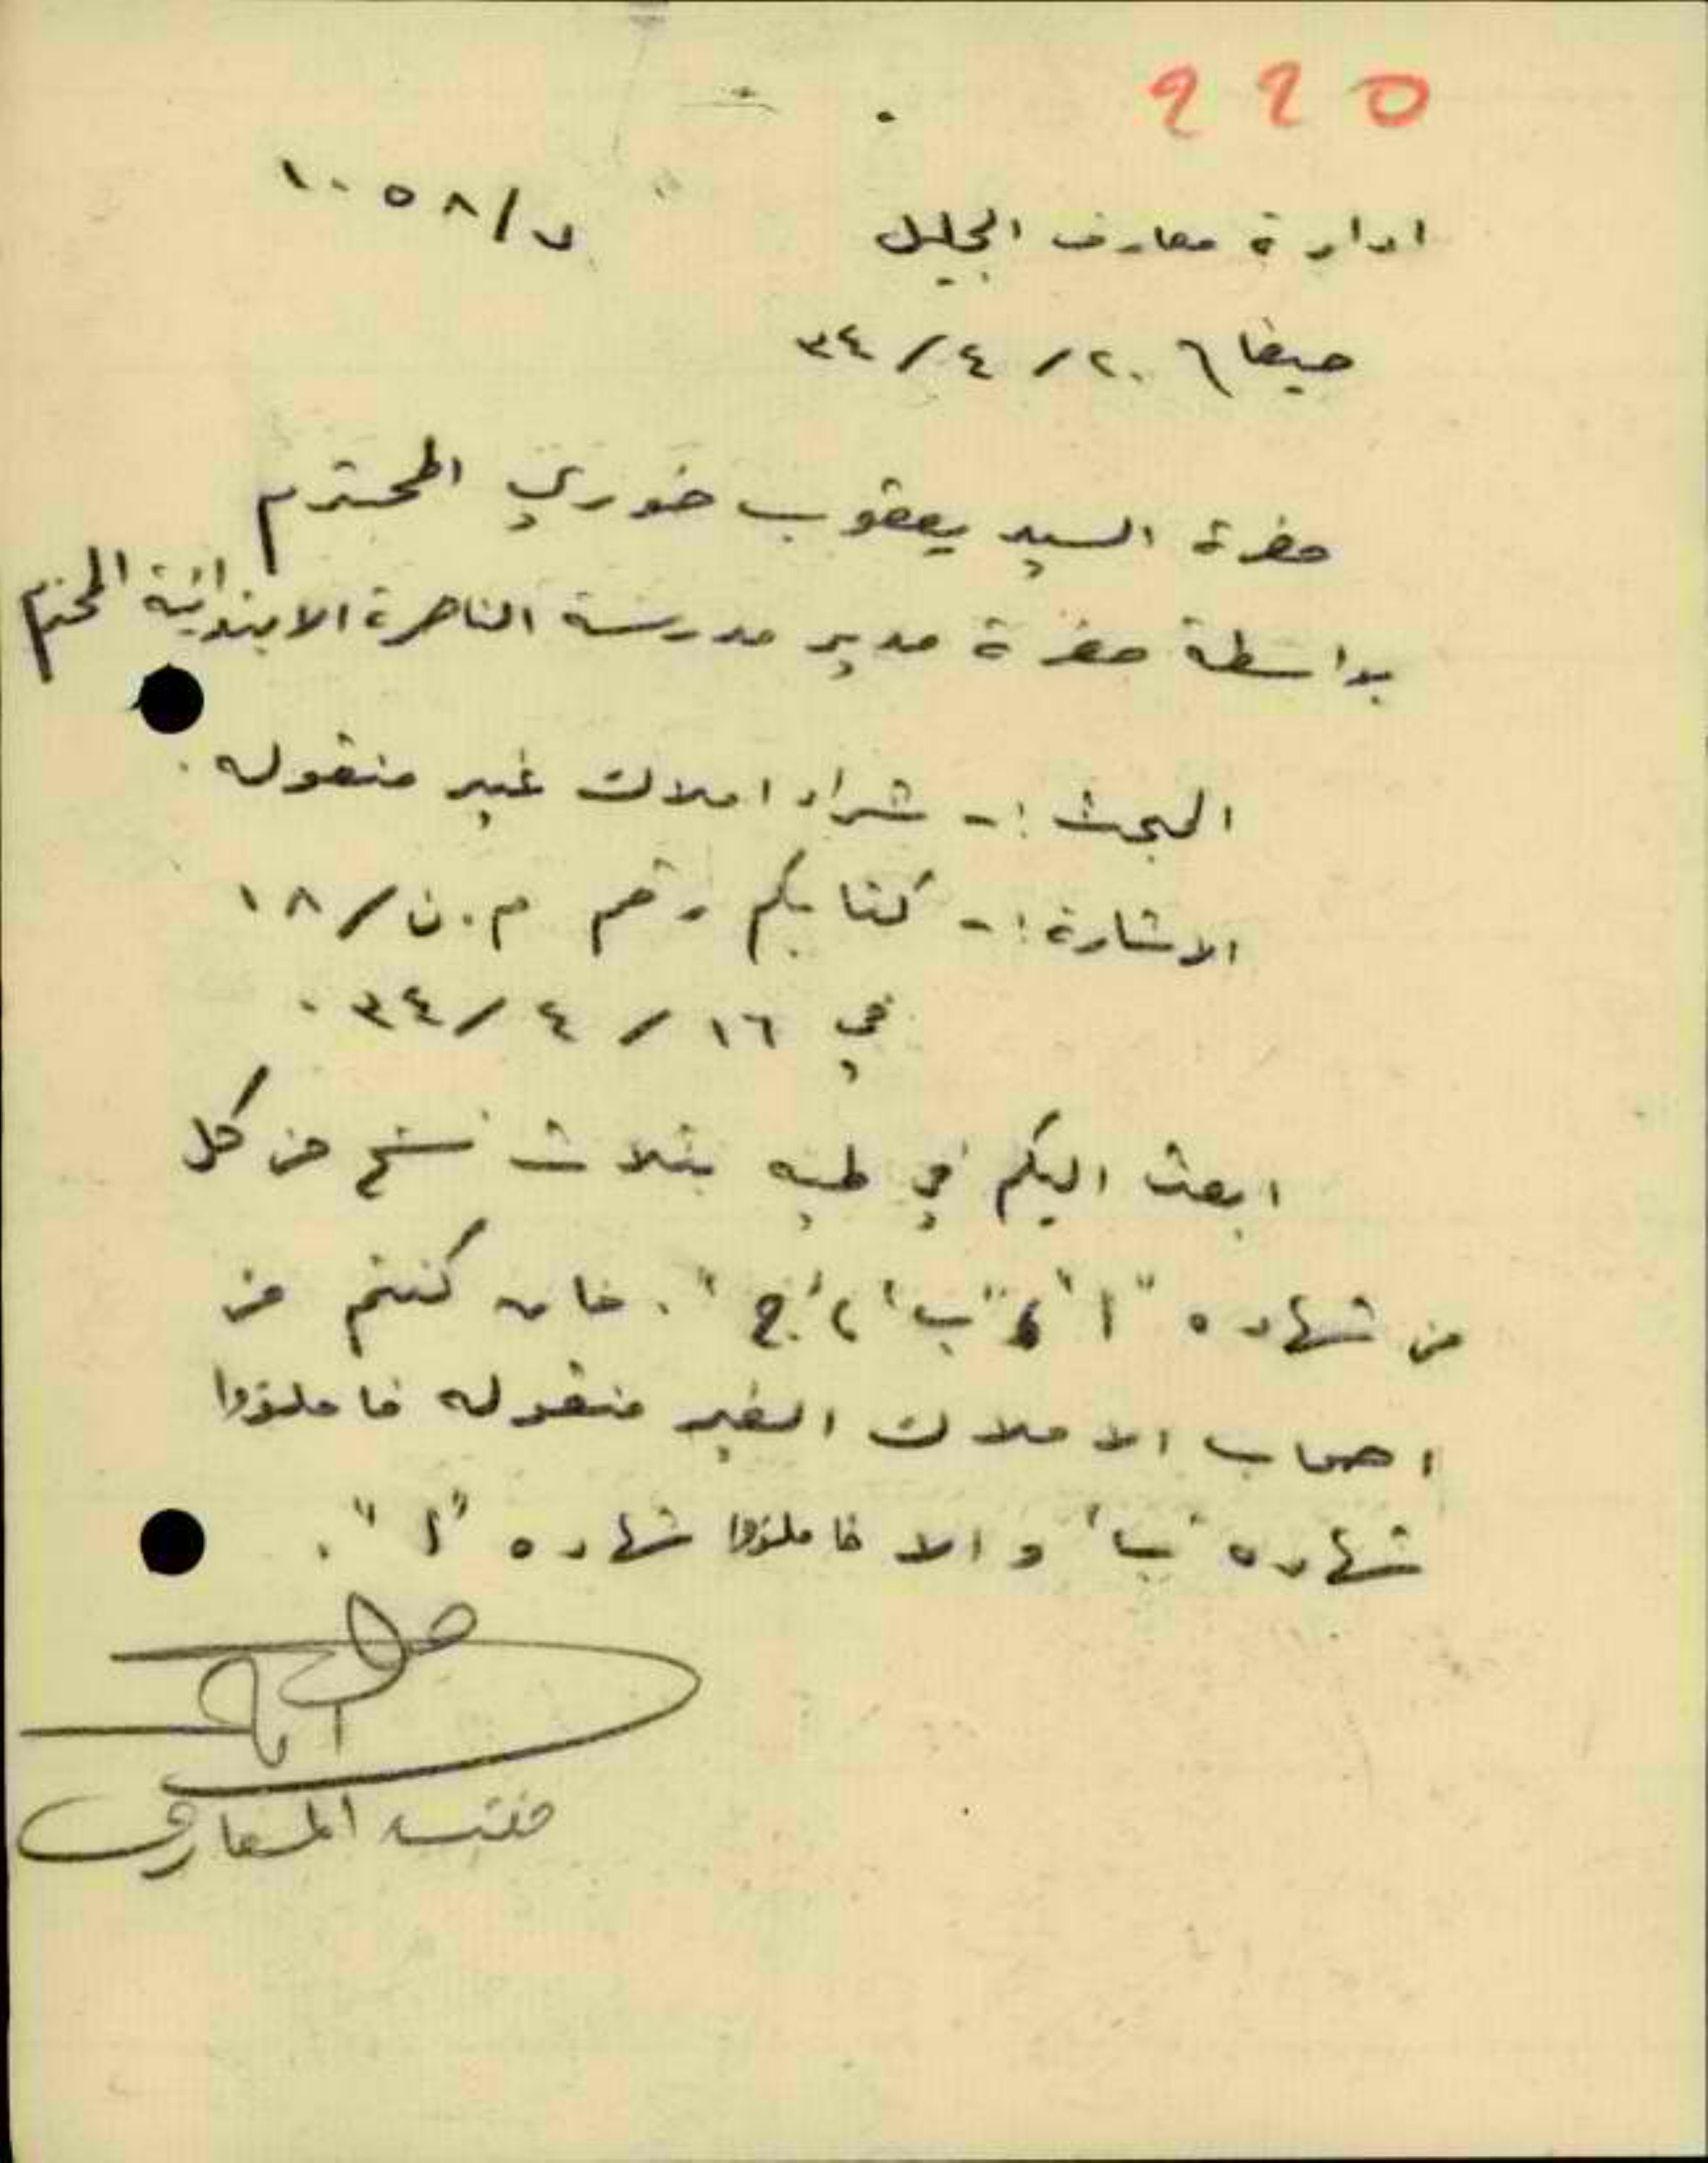 220
ادارة معارف الجليل
ل/١٠٥٨
حيفا ٢٠/٤/٣٤
حضرة السيد يعقوب خوري المحترم
بواسطة حضرة مدير مدرسة الناصرة الابتدائية المحترم
المبحث :- شراء املاك غير منقوله .
الاشارة :- كتابكم رقم م.ن/١٨
في ١٦/٤/٣٤ .
ابعث اليكم في طيه بثلاث نسخ من كل
من شهاده "ا" ، "ب" ، "ج" . فان كنتم من
اصحاب الاملاك الغير منقوله فاملؤوا
شهاده "ب" و الا فاملؤوا شهاده "ا" .
مفتش المعارف